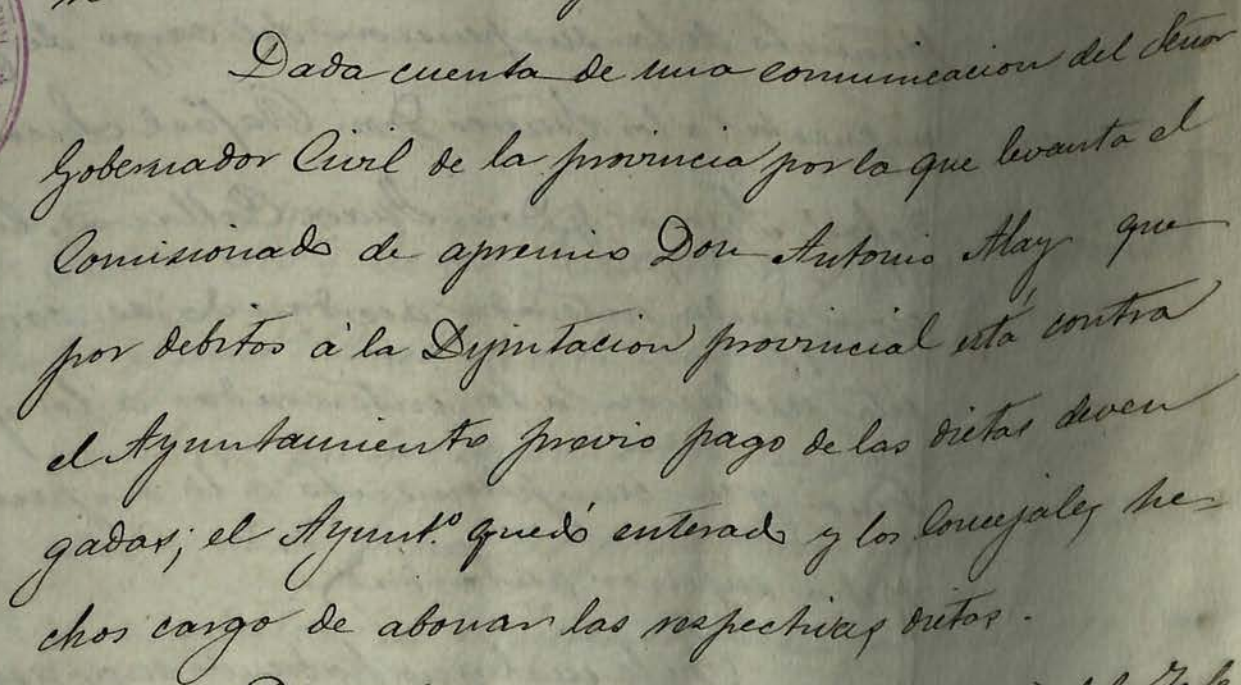 Dada cuenta de una comunicacion del Señor
Gobernador Civil de la provincia por la que levanta el
Comisionado de apremio Don Antonio Alay que
por debitos á la Diputacion provincial está contra
el Ayuntamiento previo pago de las dietas deven
gadas; el Ayunt.º quedó enterado y los Concejales he-
chos cargo de abonar las respectivas dietas.